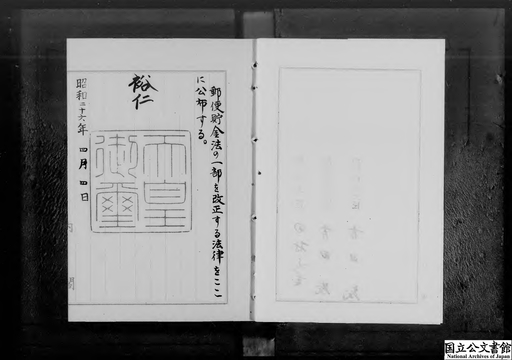 郵便貯金法の一部を改正する法律をここ
に公布する。
裕仁
天皇
御璽
昭和二十六年 四月四日
内閣
国立公文書館
National Archives of Japan